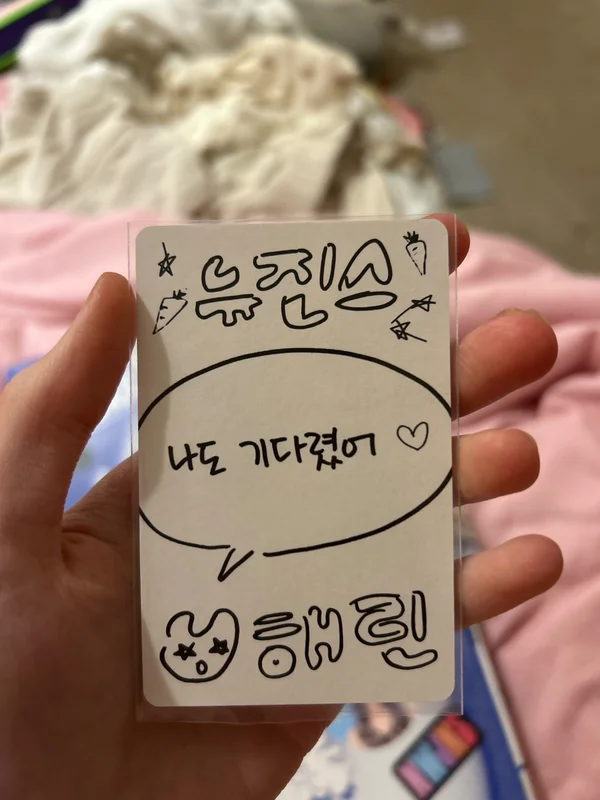 뉴진스
나도 기다렸어 ♡
해린